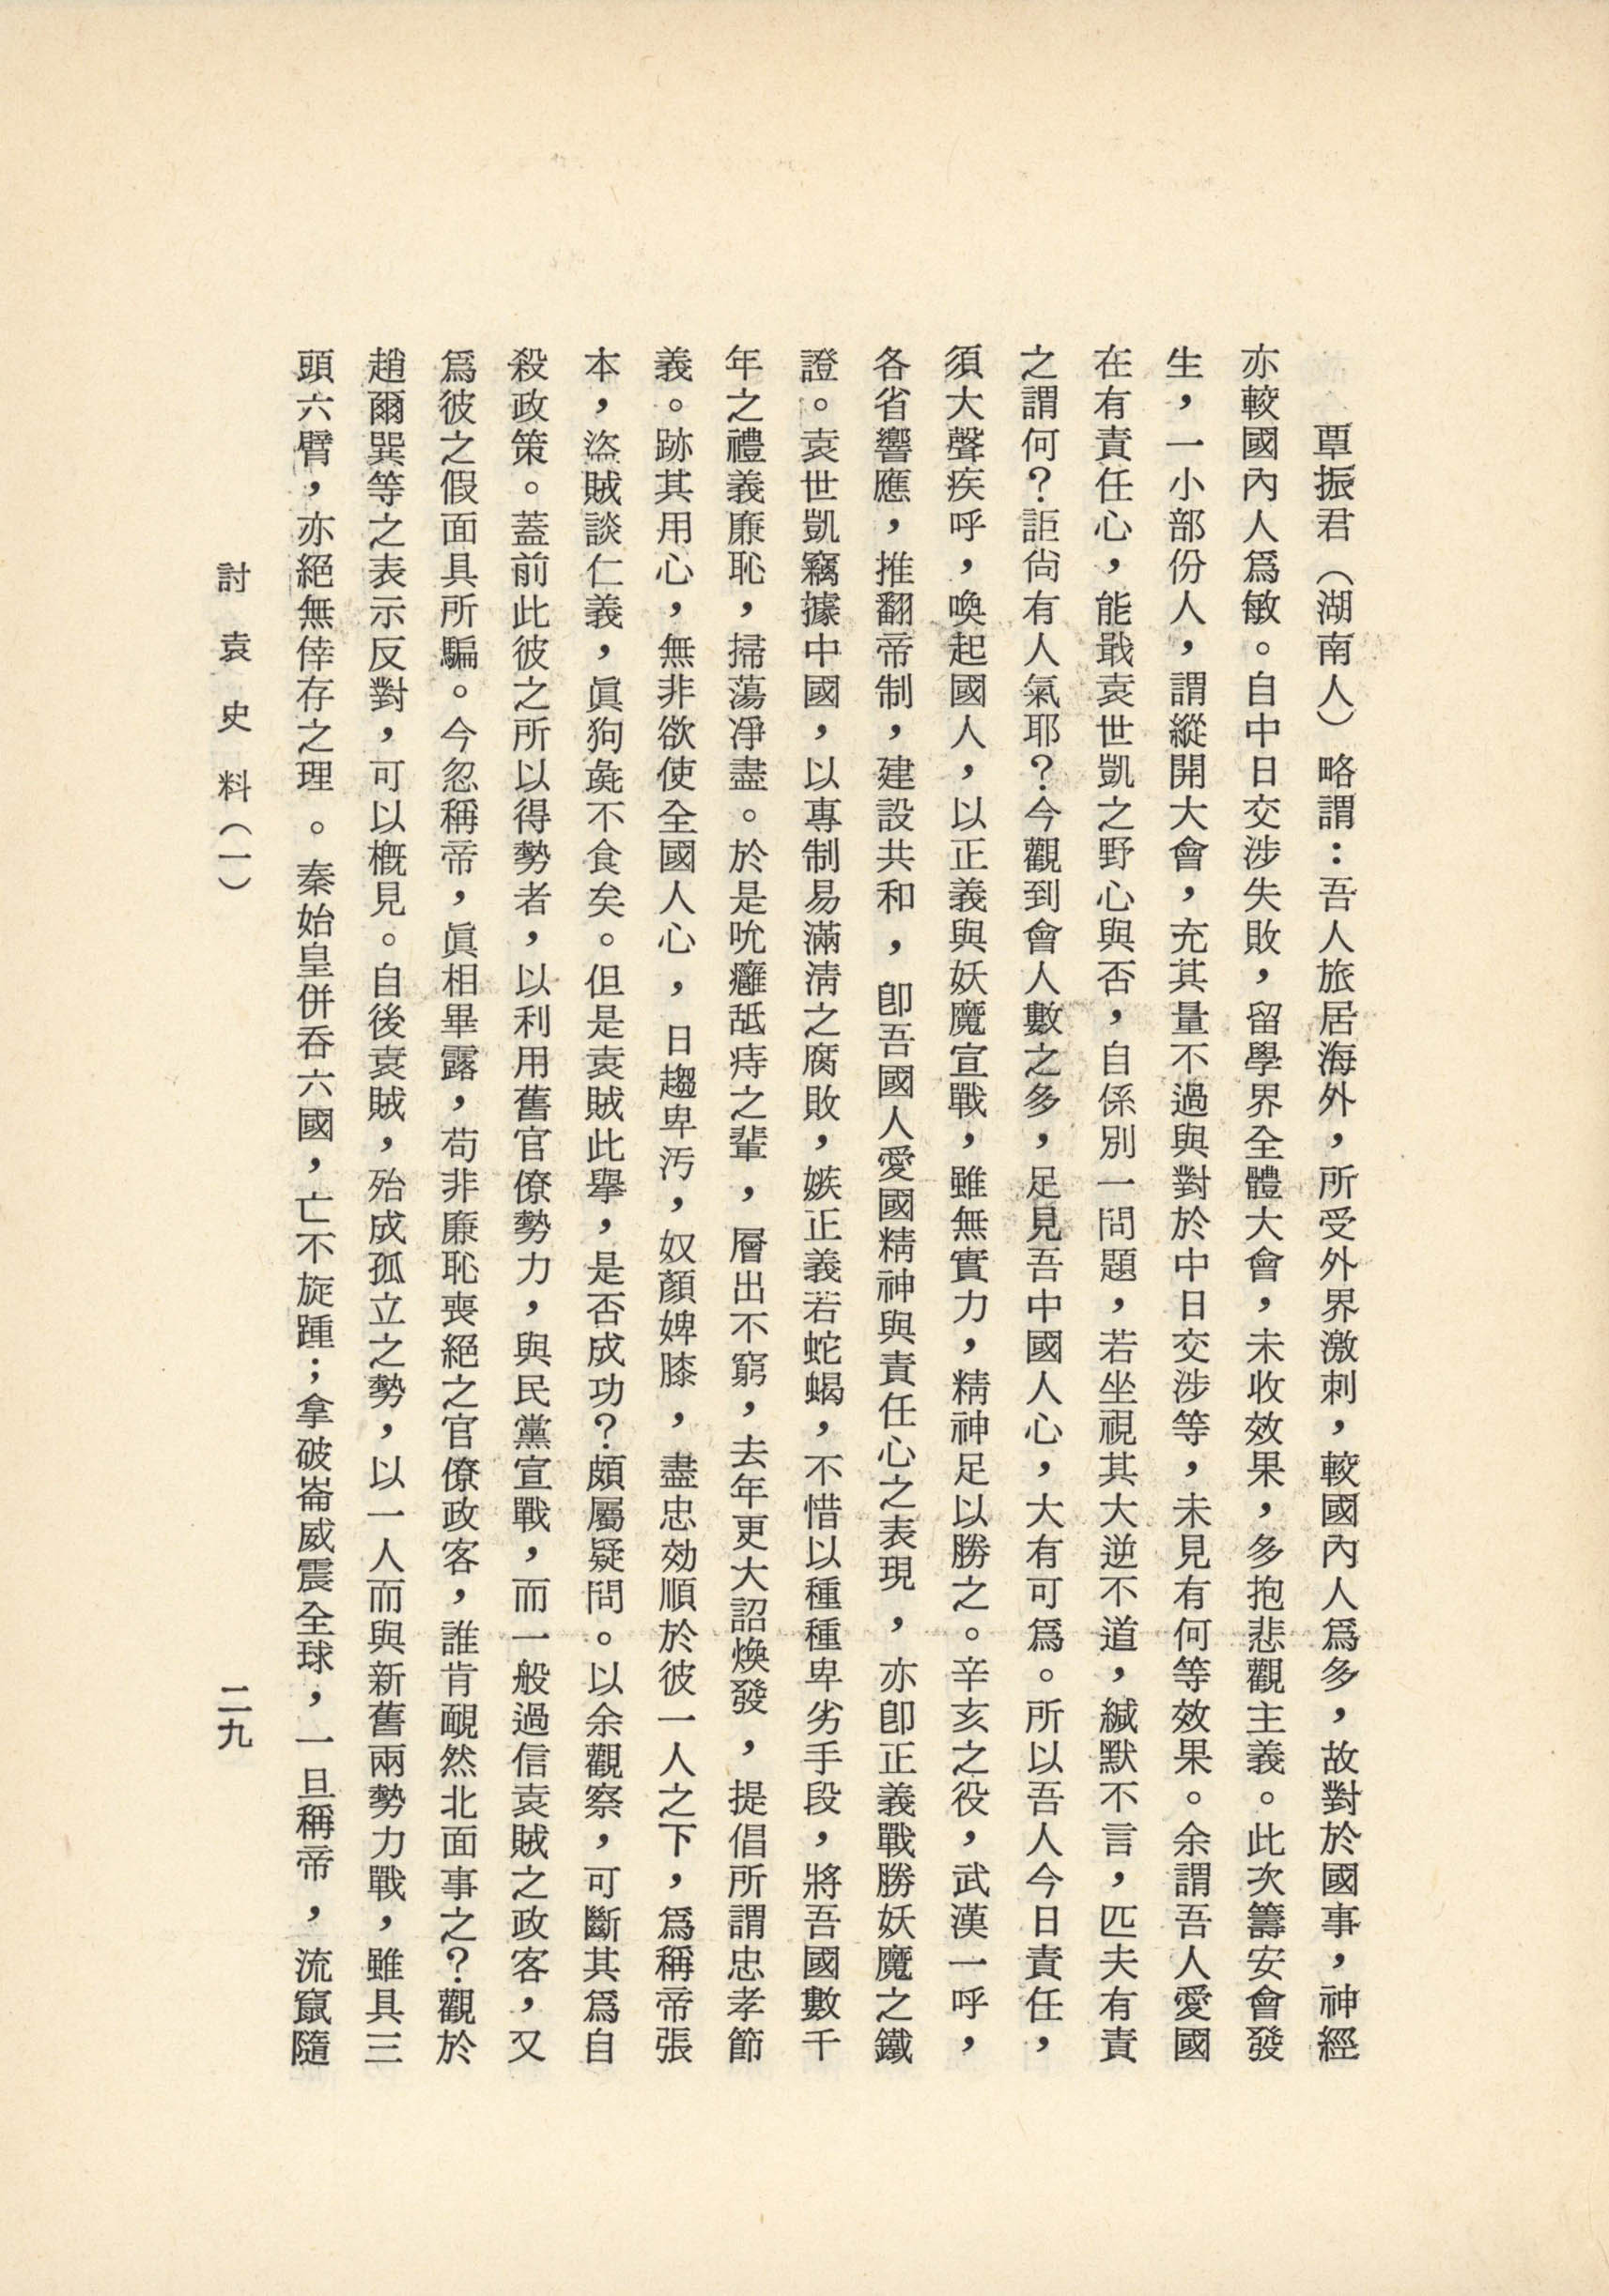 覃振君（湖南人）略謂：吾人旅居海外，所受外界激刺，較國內人爲多，故對於國事，神經
亦較國內人爲敏。自中日交涉失敗，留學界全體大會，未收效果，多抱悲觀主義。此次籌安會發
生，一小部份人，謂縱開大會，充其量不過與對於中日交涉等，未見有何等效果。余謂吾人愛國
在有責任心，能戢袁世凱之野心與否，自係別一問題，若坐視其大逆不道，緘默不言，匹夫有責
之謂何？詎尙有人氣耶？今觀到會人數之多，足見吾中國人心，大有可爲。所以吾人今日責任，
須大聲疾呼，喚起國人，以正義與妖魔宣戰，雖無實力，精神足以勝之。辛亥之役，武漢一呼，
各省響應，推翻帝制，建設共和，卽吾國人愛國精神與責任心之表現，亦卽正義戰勝妖魔之鐵
證。袁世凱竊據中國，以專制易滿淸之腐敗，嫉正義若蛇蝎，不惜以種種卑劣手段，將吾國數千
年之禮義廉恥，掃蕩凈盡。於是吮癰舐痔之輩，層出不窮，去年更大詔煥發，提倡所謂忠孝節
義。跡其用心，無非欲使全國人心，日趨卑汚，奴顏婢膝，盡忠効順於彼一人之下，爲稱帝張
本，盜賊談仁義，眞狗彘不食矣。但是袁賊此擧，是否成功？頗屬疑問。以余觀察，可斷其爲自
殺政策。蓋前此彼之所以得勢者，以利用舊官僚勢力，與民黨宣戰，而一般過信袁賊之政客，又
爲彼之假面具所騙。今忽稱帝，眞相畢露，苟非廉恥喪絕之官僚政客，誰肯靦然北面事之？觀於
趙爾巽等之表示反對，可以槪見。自後袁賊，殆成孤立之勢，以一人而與新舊兩勢力戰，雖具三
頭六臂，亦絕無倖存之理。秦始皇併吞六國，亡不旋踵；拿破崙威震全球，一旦稱帝，流竄隨
討袁史料（一）
二九